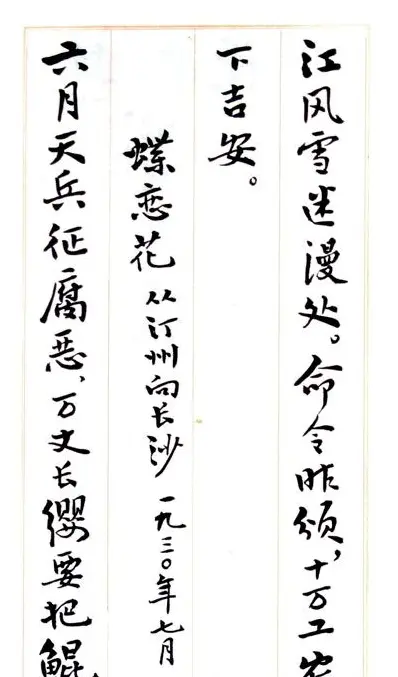 江风雪迷漫处。命令昨颁，十万工农
下吉安。
蝶恋花 从汀州向长沙 一九三〇年七月
六月天兵征腐恶、万丈长缨要把鲲